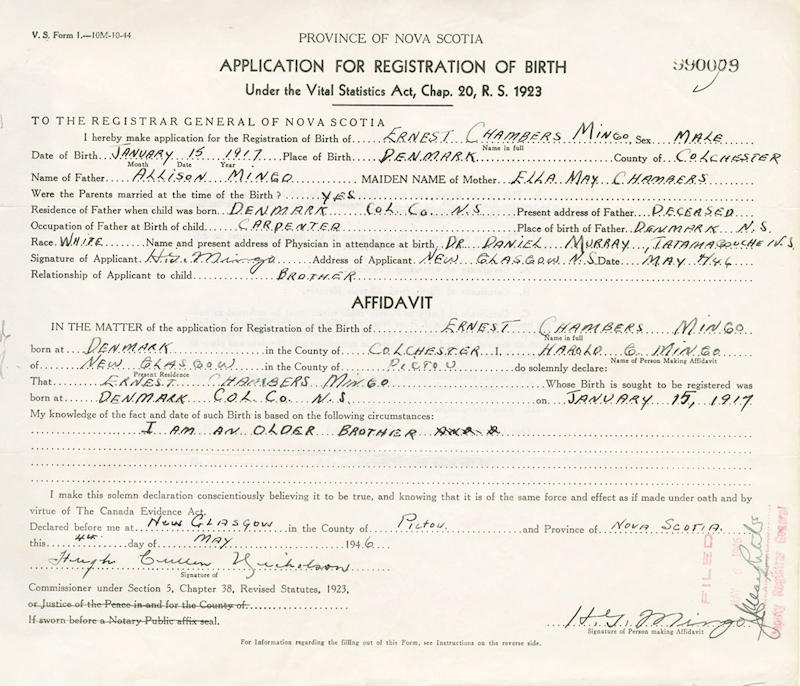 V. S. Form 1.—10M-10-44
PROVINCE OF NOVA SCOTIA
990009
APPLICATION FOR REGISTRATION OF BIRTH
Under the Vital Statistics Act, Chap. 20, R. S. 1923
TO THE REGISTRAR GENERAL OF NOVA SCOTIA
I hereby make application for the Registration of Birth of ERNEST CHAMBERS MINGO Sex MALE
Name in full
Date of Birth JANUARY 15 1917 Place of Birth DENMARK County of COLCHESTER
Month Date Year
Name of Father ALLISON MINGO MAIDEN NAME of Mother ELLA MAY CHAMBERS
Were the Parents married at the time of the Birth? YES
Residence of Father when child was born DENMARK COL. CO. N.S Present address of Father DECEASED
Occupation of Father at Birth of child CARPENTER Place of birth of Father DENMARK N.S.
Race WHITE Name and present address of Physician in attendance at birth DR DANIEL MURRAY, TATAMAGOUCHE N.S.
Signature of Applicant H.G. Mingo Address of Applicant NEW GLASGOW N.S Date MAY 4/46
Relationship of Applicant to child BROTHER
AFFIDAVIT
IN THE MATTER of the application for Registration of the Birth of ERNEST CHAMBERS MINGO
Name in full
born at DENMARK in the County of COLCHESTER I, HAROLD G. MINGO
Name of Person Making Affidavit
of NEW GLASGOW in the County of PICTOU do solemnly declare:
Present Residence
That ERNEST CHAMBERS MINGO Whose Birth is sought to be registered was
born at DENMARK COL. CO. N.S. on JANUARY 15, 1917
My knowledge of the fact and date of such Birth is based on the following circumstances:
I AM AN OLDER BROTHER
I make this solemn declaration conscientiously believing it to be true, and knowing that it is of the same force and effect as if made under oath and by
virtue of The Canada Evidence Act.
Declared before me at NEW GLASGOW in the County of PICTOU and Province of NOVA SCOTIA.
this 4th day of MAY 1946
Hugh Cullen Nicholson
Signature of
Commissioner under Section 5, Chapter 38, Revised Statutes, 1923,
or Justice of the Peace in and for the County of
If sworn before a Notary Public affix seal.
H.G. Mingo
Signature of Person making Affidavit
For Information regarding the filling out of this Form, see Instructions on the reverse side.
FILED
Deputy Registrar General